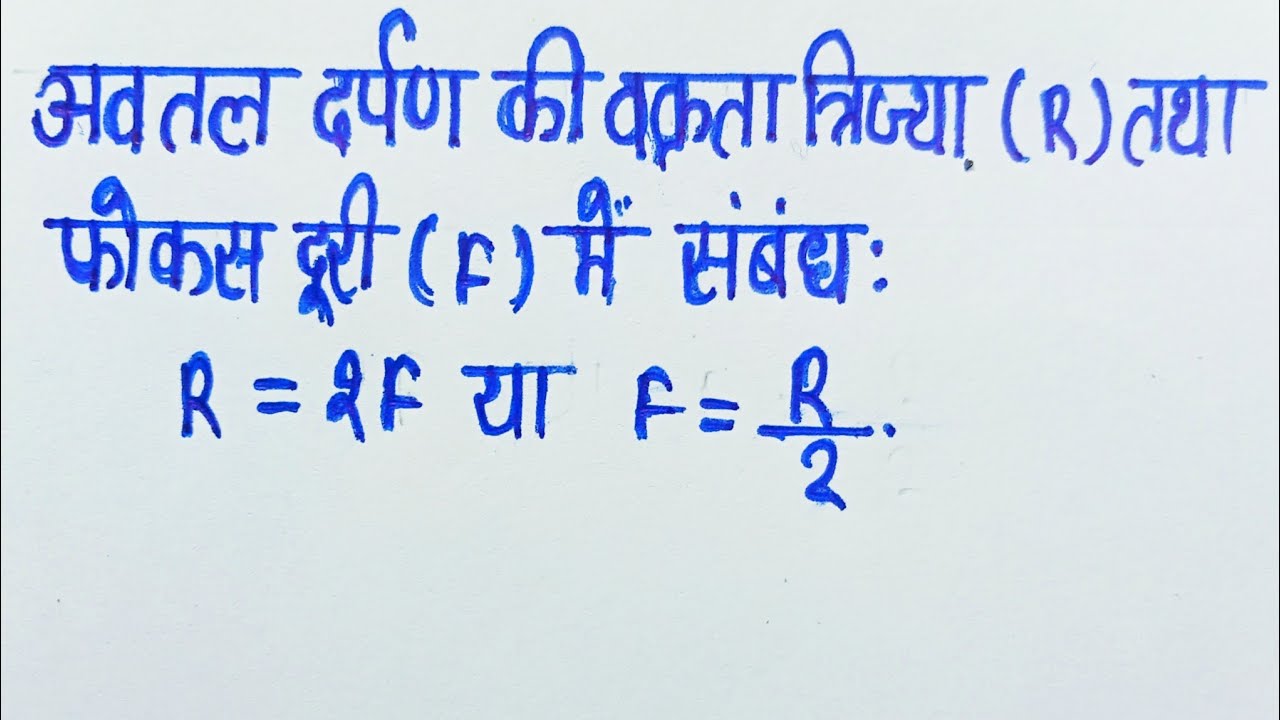 अवतल दर्पण की वक्रता त्रिज्या (R) तथा
फोकस दूरी (F) में संबंध:
R = 2F या F = R/2.